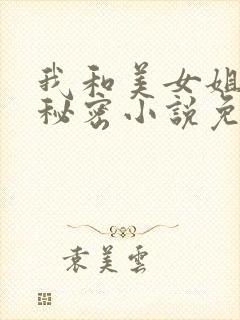 我和美女姐
秘密小说免
袁美雲